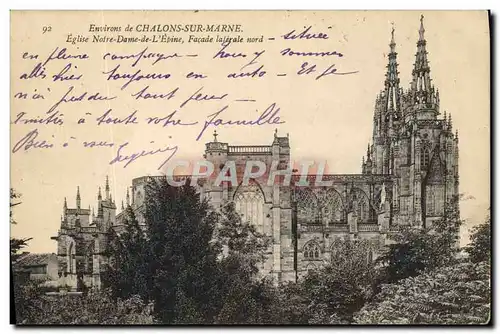 92
Environs de CHALONS-SUR-MARNE.
Eglise Notre-Dame-de-L'Epine, Façade latérale nord
située
en pleine campagne - nous y sommes
allés hier toujours en auto - Et je
n'ai perdu tout
à toute votre famille
Bien à vous
CPARAMA